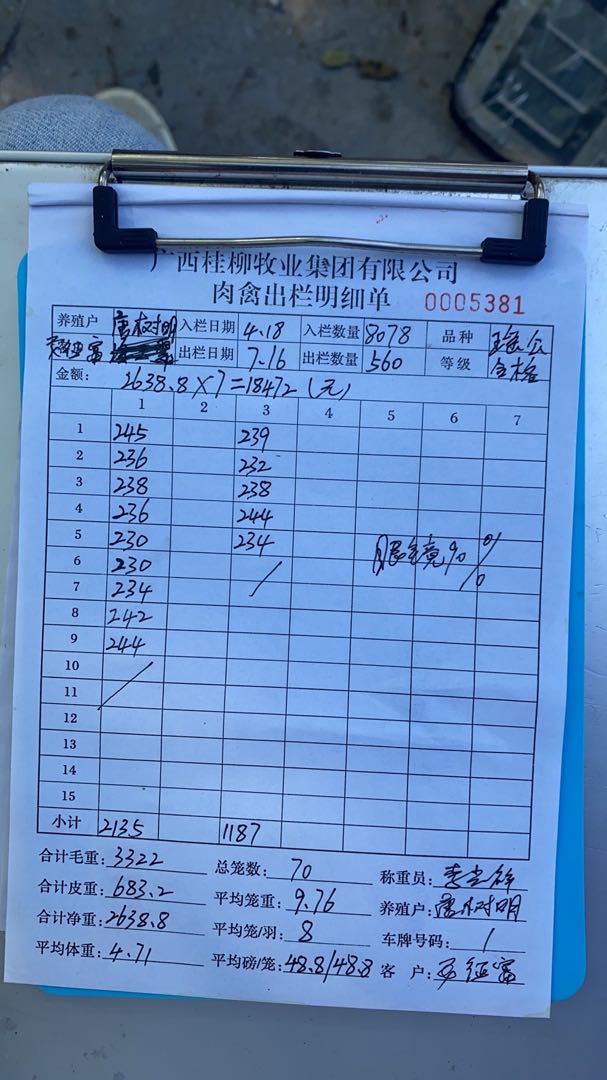 广西桂柳牧业集团有限公司
肉禽出栏明细单 0005381
养殖户 唐树明 入栏日期 4.18 入栏数量 8078 品种
出栏日期 7.16 出栏数量 560 等级 合格
金额: 2638.8×7=18472(元)
1 2 3 4 5 6 7
1 245 239
2 236 232
3 238 238
4 236 244
5 230 234
6 230 /
7 234
8 242
9 244
10 /
11
12
13
14
15
小计 2135 1187
合计毛重: 3322 总笼数: 70 称重员:
合计皮重: 683.2 平均笼重: 9.76 养殖户: 唐树明
合计净重: 2638.8 平均笼/羽: 8 车牌号码: 1
平均体重: 4.71 平均磅/笼: 48.8/48.8 客户: